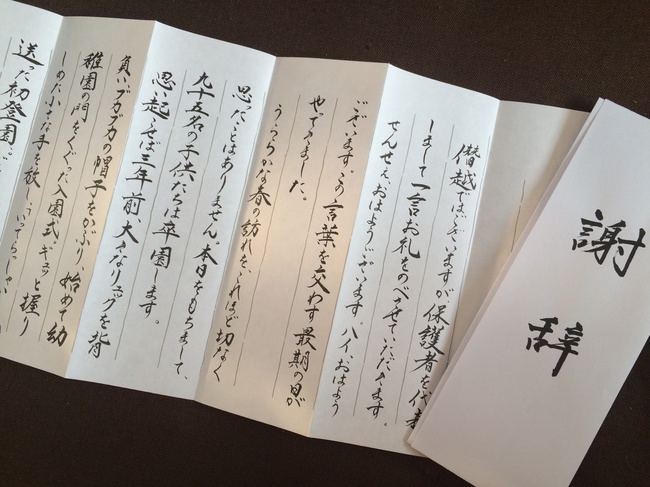 謝辞
僭越ではございますが保護者を代表
しまして一言お礼をのべさせていただきます。
せんせぇおはようございます。ハイ、おはよう
ございます。この言葉を交わす最期の日が
やってきました。
うららかな春の訪れをこれほど切なく
思ったことはありません。本日をもちまして、
九十五名の子供たちは卒園します。
思い起せば三年前大きなリュックを背
負い、ブカブカの帽子をかぶり、始めて幼
稚園の門をくぐった入園式。ギュッと握り
しめた小さな手を放し、いってらっしゃい
送った初登園。